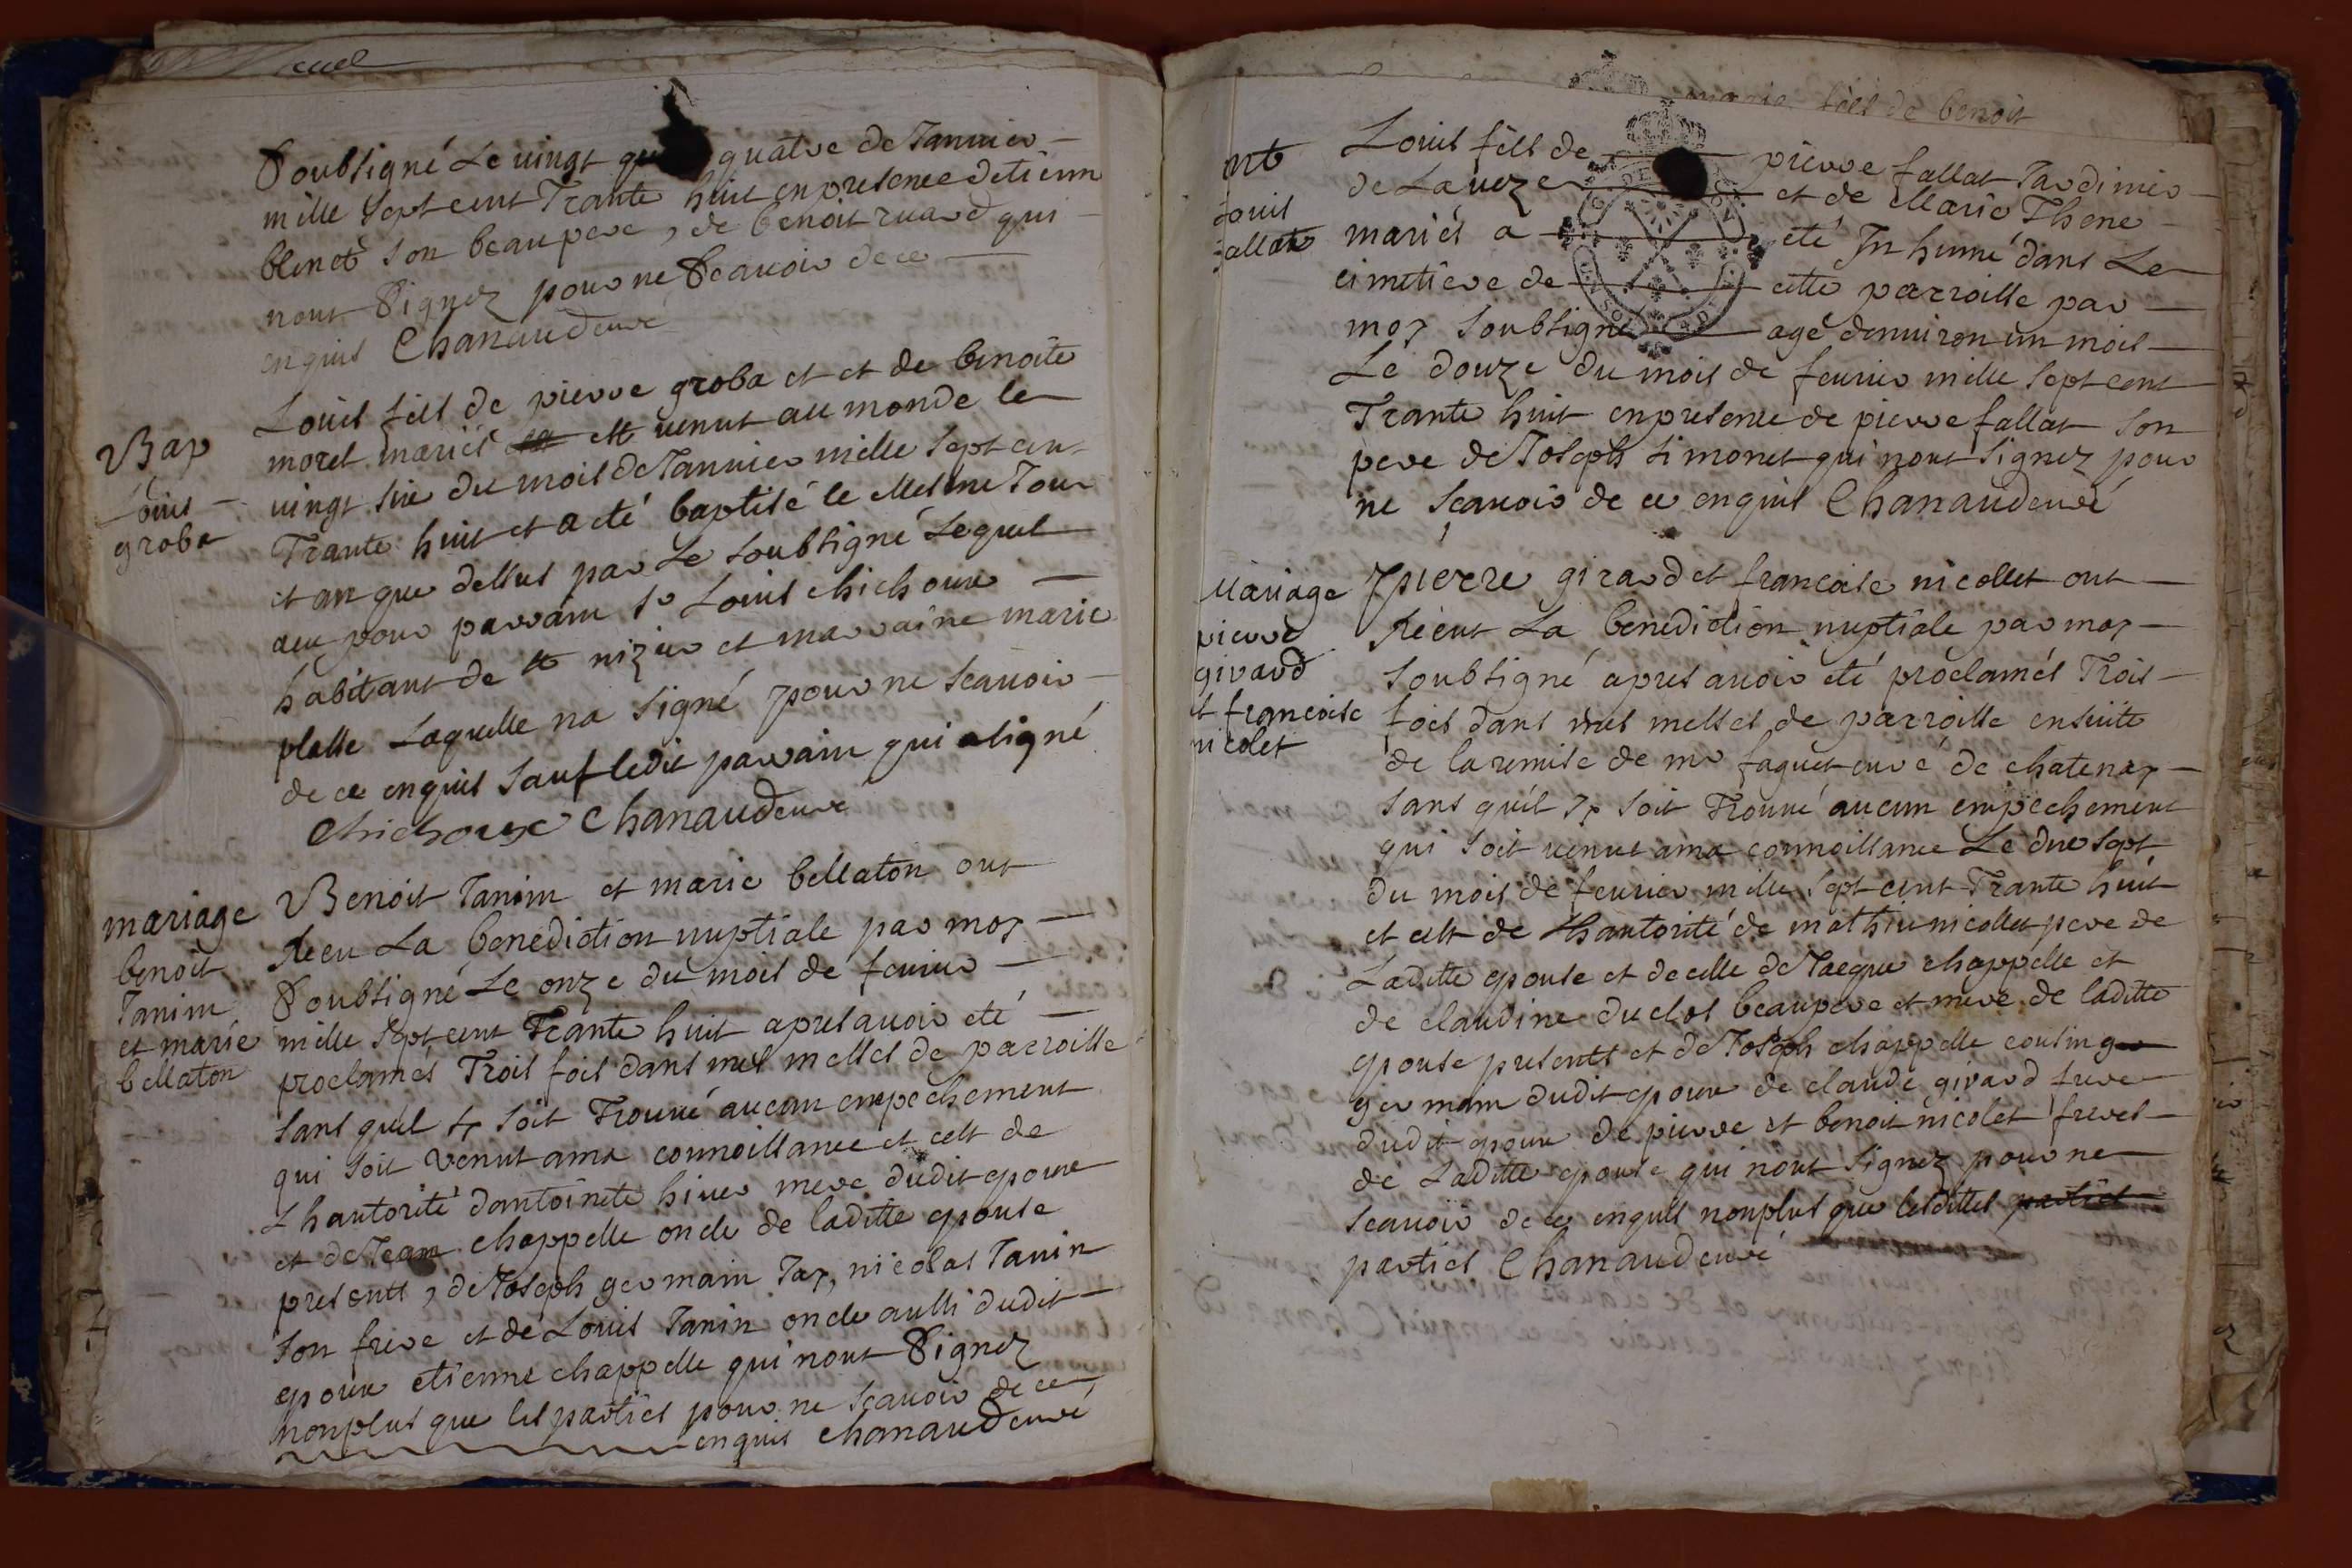 Soubsigné Le vingt quatre de Janvier
mille Sept cent Trante huit en presence detienn
blenet son beaupere, de benoit ruard qui
nont Signez pour ne Scavoir de ce
enquis Chanaud curé
Bap
Louis
groba
Louis fils de pierre groba et et de benoite
morel mariés est venut au monde le
vingt six du mois de Janvier mille sept cent
Trante huit et a eté baptisé le Mesme Jour
et an que dessus par Le soubsigné Lequel
aeu pour parrain sr Louis chichoux
habitant de st nizier et marraine marie
plasse Laquelle na signé pour ne scavoir
de ce enquis sauf ledit parrain qui a signé
Chichoux Chanaud curé
mariage
benoit
Janin
et marie
bellaton
Benoit Janin et marie bellaton ont
Receu La benediction nuptiale par moy
Soubsigné Le onze du mois de fevrier
mille sept cent Trante huit apres avoir eté
proclamés Trois fois dans mes messes de parroisse
sans quil sy soit Trouvé aucun empechement
qui soit venut ama connoissance et cest de
Lhautorité dantoinete hiver mere dudit epoux
et de Jean chappelle oncle de laditte epouse
presents, de Joseph germain Jay, nicolas Janin
son frere et de Louis Janin oncle aussi dudit
epoux etienne chappelle qui nont Signez
nonplus que les parties pour ne scavoir de ce
enquis chanaud curé
marie fils de benoit
nt
Louis
fallat
Louis fils de pierre fallat Jardinier
de Laveze et de Marie Thene
mariés a eté Inhumé dans Le
cimetiere de cette parroisse par
moy soubsigné agé denviron un mois
Le douze du mois de fevrier mille sept cent
Trante huit en presence de pierre fallat son
pere de Joseph simonet qui nont signez pour
ne scavoir de ce enquis Chanaud curé
Mariage
pierre
girard
et francoise
nicolet
pierre girard et francoise nicollet ont
Receut La benediction nuptiale par moy
soubsigné apres avoir eté proclamés Trois
fois dans mes messes de parroisse ensuite
de la remise de mr faguet curé de chatenay
sans quil sy soit Trouvé aucun empechement
qui soit venut ama connoissance Le dixsept
du mois de fevrier mille sept cent Trante huit
et cest de Lhautorité de mathieu nicollet pere de
Laditte epouse et de celle de Jacque chappelle et
de claudine duclos beaupere et mere de laditte
epouse presents et de Joseph chappelle cousin ger
germain dudit epoux de claude girard frere
dudit epoux de pierre et benoit nicolet freres
de Laditte epouse qui nont signez pour ne
scavoir de ce enquis nonplus que lesdittes parties
parties Chanaud curé